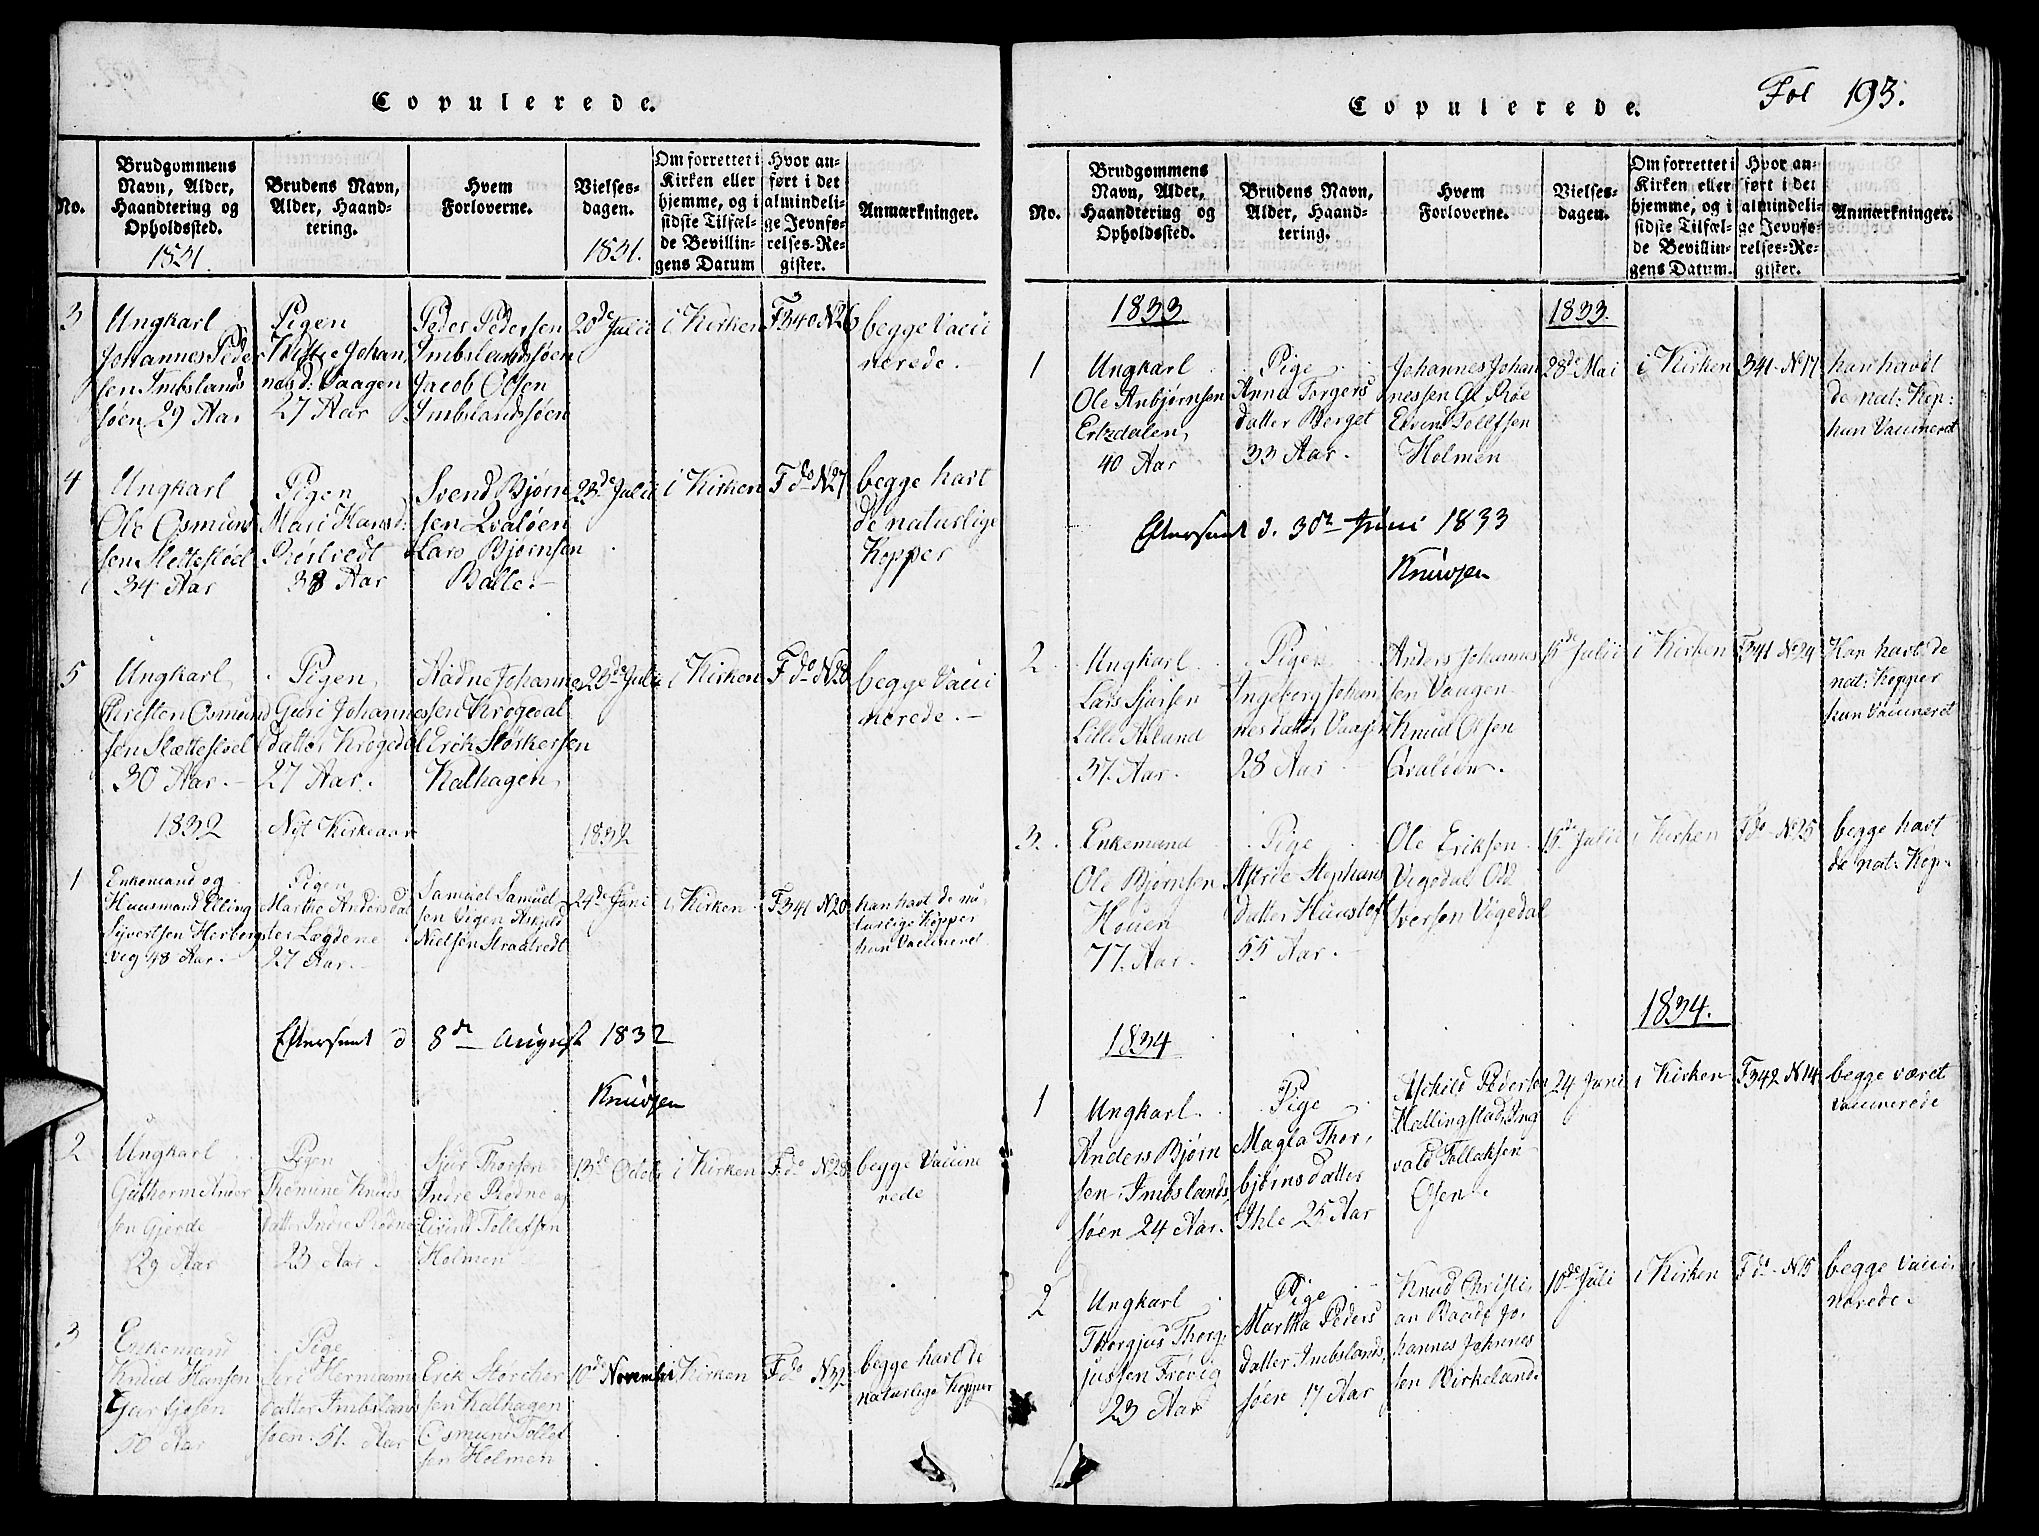 Copulerede.
No.
Brudgommens
Navn, Alder,
Haandtering og
Opholdssted.
1831.
Brudens Navn,
Alder, Haand-
tering.
Hvem
Forloverne.
Vielses-
dagen.
1831.
Om forrettet i
Kirken eller
hjemme, og i
sidste Tilfæl-
de Bevillin-
gens Datum
Hvor an-
ført i det
almindeli-
ge Jevnfø-
relses-Re-
gister.
Anmærkninger.
3
Ungkarl
Johannes Peder
sen Imbslands
søen 29 Aar
Pigen
Johan
nesd: Vaagen
27 Aar
Peder Pedersen
Imbslandssøen
Jacob Olsen
Imbslandssøen
20de Julii
i Kirken
F340 N26
begge Vacci
nerede.
4
Ungkarl
Ole Osmund
sen
34 Aar
Pigen
Mari Hansd:
38 Aar
Svend Bjørn
sen Qvaløen
Lars Bjørnsen
Balle.
23de Julii
i Kirken
F do N27
begge havt
de naturlige
Kopper
5
Ungkarl
Christen Osmund
sen
30 Aar.
Pigen
Guri Johannes
datter Krogedal
27 Aar.
Aadne Johannes
sen Krogedal
Erik Størkersen
Kalhagen
23de Julii
i Kirken
F do N28
begge Vacci
nerede.
1832
Nyt Kirkeaar
1832
1
Enkemand og
Huusmand Elling
Sjvertsen Herbergs
vig 48 Aar.
Pigen
Marthe Andersdat
ter Lægdene
27 Aar.
Samuel Samuel
sen Vigen
Nielsen
24de Juni
i Kirken
F341 N20
han havt de na
turlige Kopper
hun Vaccineret
Eftersеet d 8de August 1832
Knudsen
2
Ungkarl
Guthorm Ander
sen Gjerde
29 Aar
Pigen
Knuds
datter Indre Rødne
23 Aar.
Sjur Thorsen
Indre Rødne og
Eivind Tollefsen
Holmen
13de Octob
i Kirken
F do N28
begge Vaccine
rede
3
Enkemand
Knud Hansen
50 Aar
Pige
Siri Hermann
datter Imbslands
søen. 51. Aar
Erik Størcher
sen Kalhagen
Osmund Tollef
sen Holmen
10de November
i Kirken
F do N32
begge havt de
naturlige Kopper
Copulerede.
Fol 193.
No.
Brudgommens
Navn, Alder,
Haandtering og
Opholdssted.
Brudens Navn,
Alder, Haand-
tering.
Hvem
Forloverne.
Vielses-
dagen.
Om forrettet i
Kirken eller
hjemme, og i
sidste Tilfæl-
de Bevillin-
gens Datum.
Hvor an-
ført i det
almindeli-
ge Jevnfø-
relses-Re-
gister.
Anmærkninger.
1833
1833.
1
Ungkarl
Ole Anbjørnsen
Ertzdalen,
40 Aar
Pige
Anna Torgers
datter Berget
33 Aar.
Johannes Johan
nessen
Eivind Tollefsen
Holmen
28de Mai
i Kirken
341 No 17
han havdt
de nat: Kop:
hun Vaccineret
Eftersеet d. 30te Juni 1833
Knudsen
2
Ungkarl
Lars Sjursen
Lille
37. Aar.
Pigen
Ingeborg Johan
nesdatter Vaagen
28 Aar
Anders Johannes
sen Vaagen
Knud Olsen
Qvaløen.
15de Julii
i Kirken
F341 No 24
Han havt de
nat: Kopper
hun Vaccineret
3.
Enkemand
Ole Bjørnsen
Houen
77. Aar.
Pige
Astrid Stephans
datter
55 Aar.
Ole Eriksen
Vegedal Odd
Iversen Vegedal
15de Julii
i Kirken
F do No 25
begge havt
de nat: Kop:
1834
1834.
1
Ungkarl
Anders Bjørn
sen, Imbslands
søen 24 Aar.
Pige
Magla Thor
bjørnsdatter
25 Aar
Askild Pedersen
Hellingstad,
vald Tollaksen
Osen.
24 Juni
i Kirken
F342 N14
begge været
vaccinerede
2
Ungkarl
Thorgjus Thorg
jussen Frøvig
23 Aar
Pige
Martha Peders
datter Imbslands
søen 17 Aar
Knud Christi
an Baade Jo
hannes Johannes
sen Birkeland.
10de Juli
i Kirken
F do N15
begge vacci
nerede.